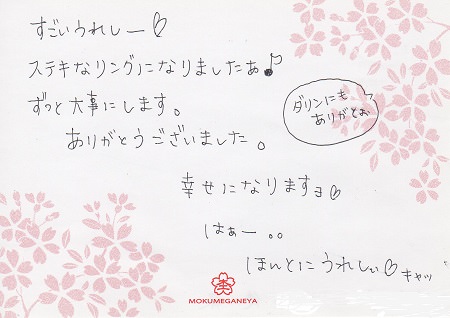 すごいうれしー♡
ステキなリングになりましたぁ♪
ずっと大事にします。
ありがとうございました。
ダリンにも
ありがとぉ
幸せになりますョ♡
はぁー。。
ほんとにうれしぃ♡キャッ
MOKUMEGANEYA